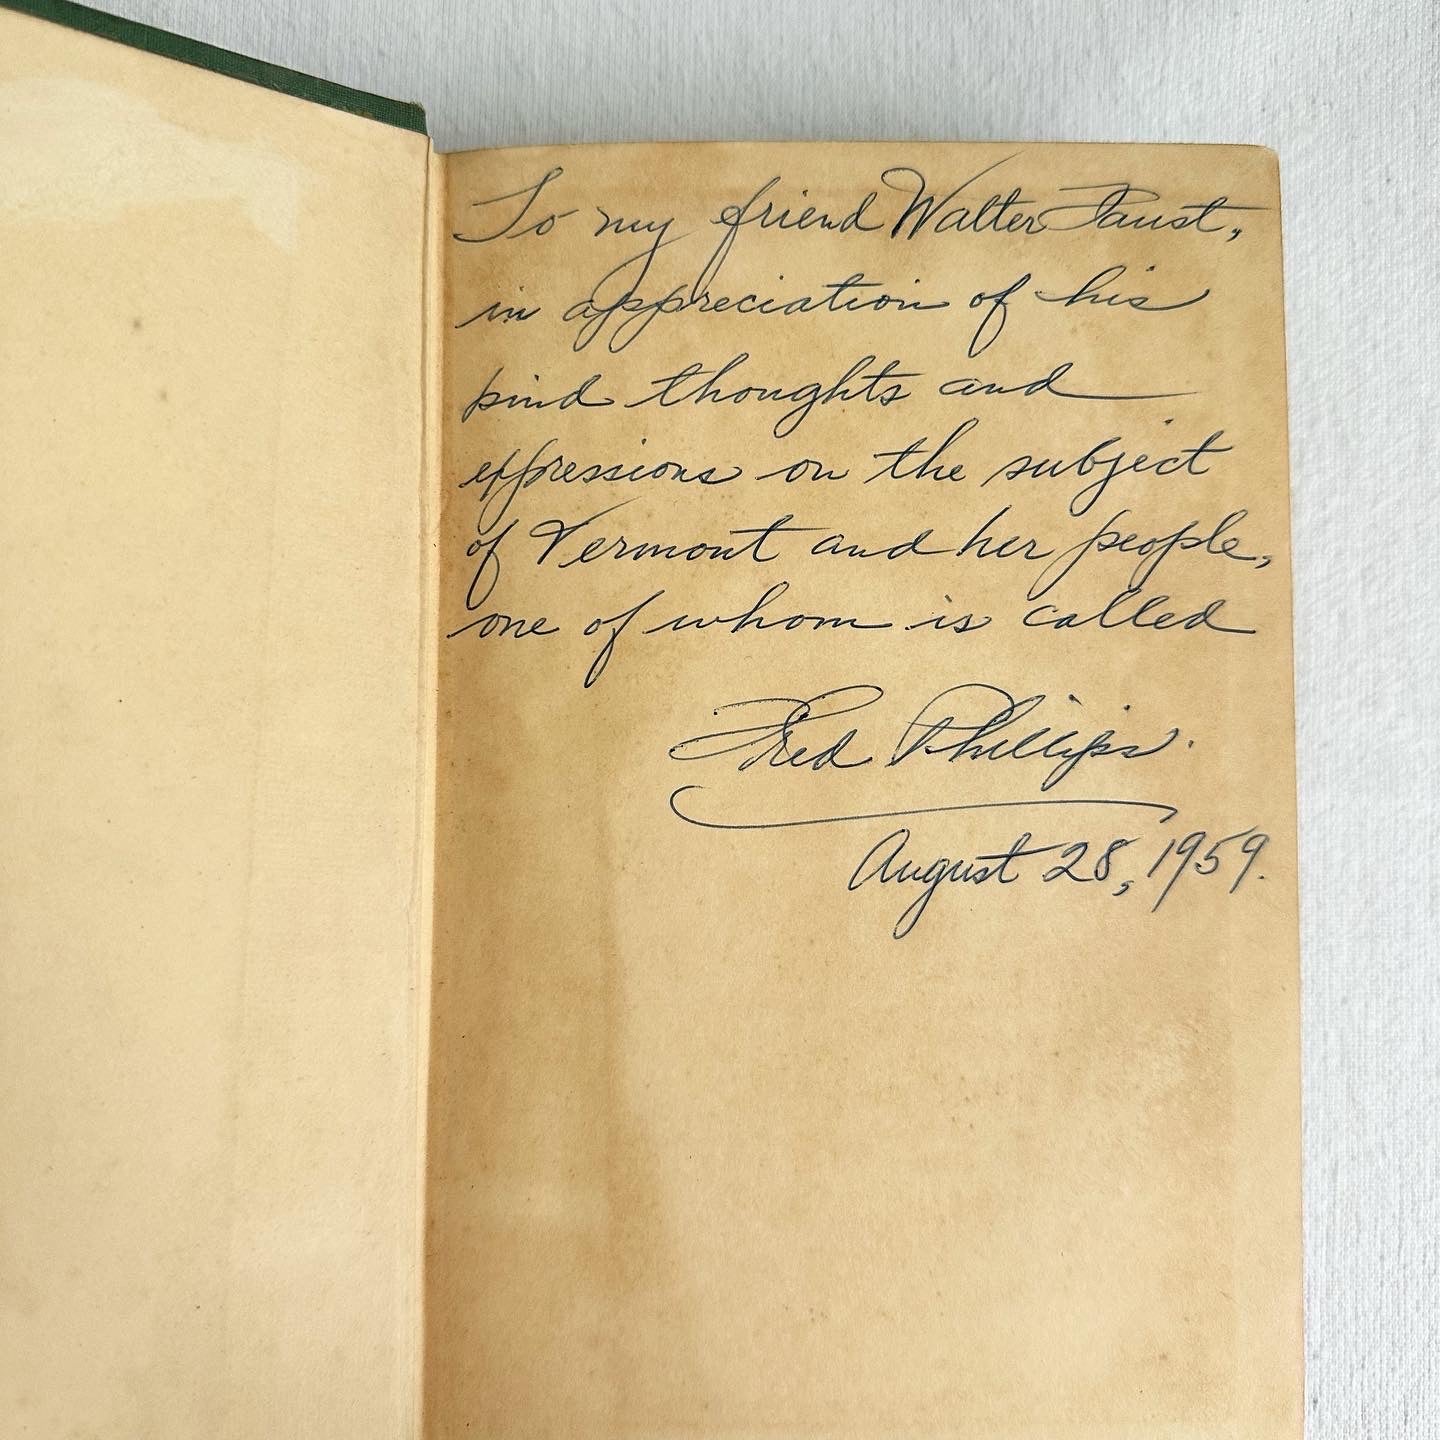 To my friend Walter Faust,
in appreciation of his
kind thoughts and
expressions on the subject
of Vermont and her people,
one of whom is called
Fred Phillips.
August 28, 1959.